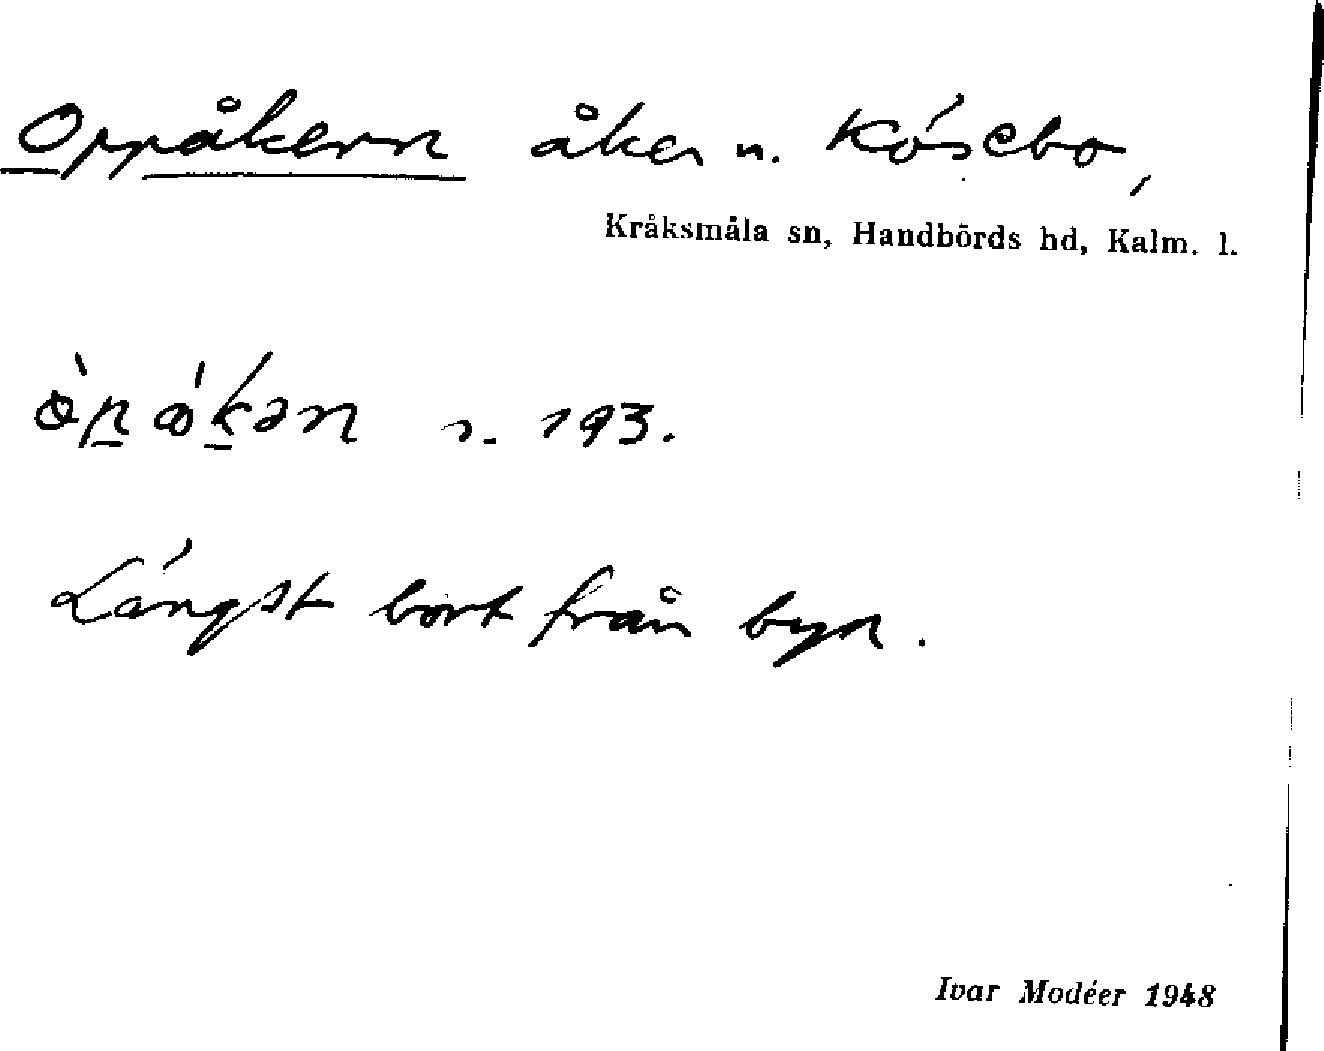 Oppåkern åker n. Kösebo,
Kråksmåla sn, Handbörds hd, Kalm. l.
s. 193.
Längst bort från byn.
Ivar Modéer 1948